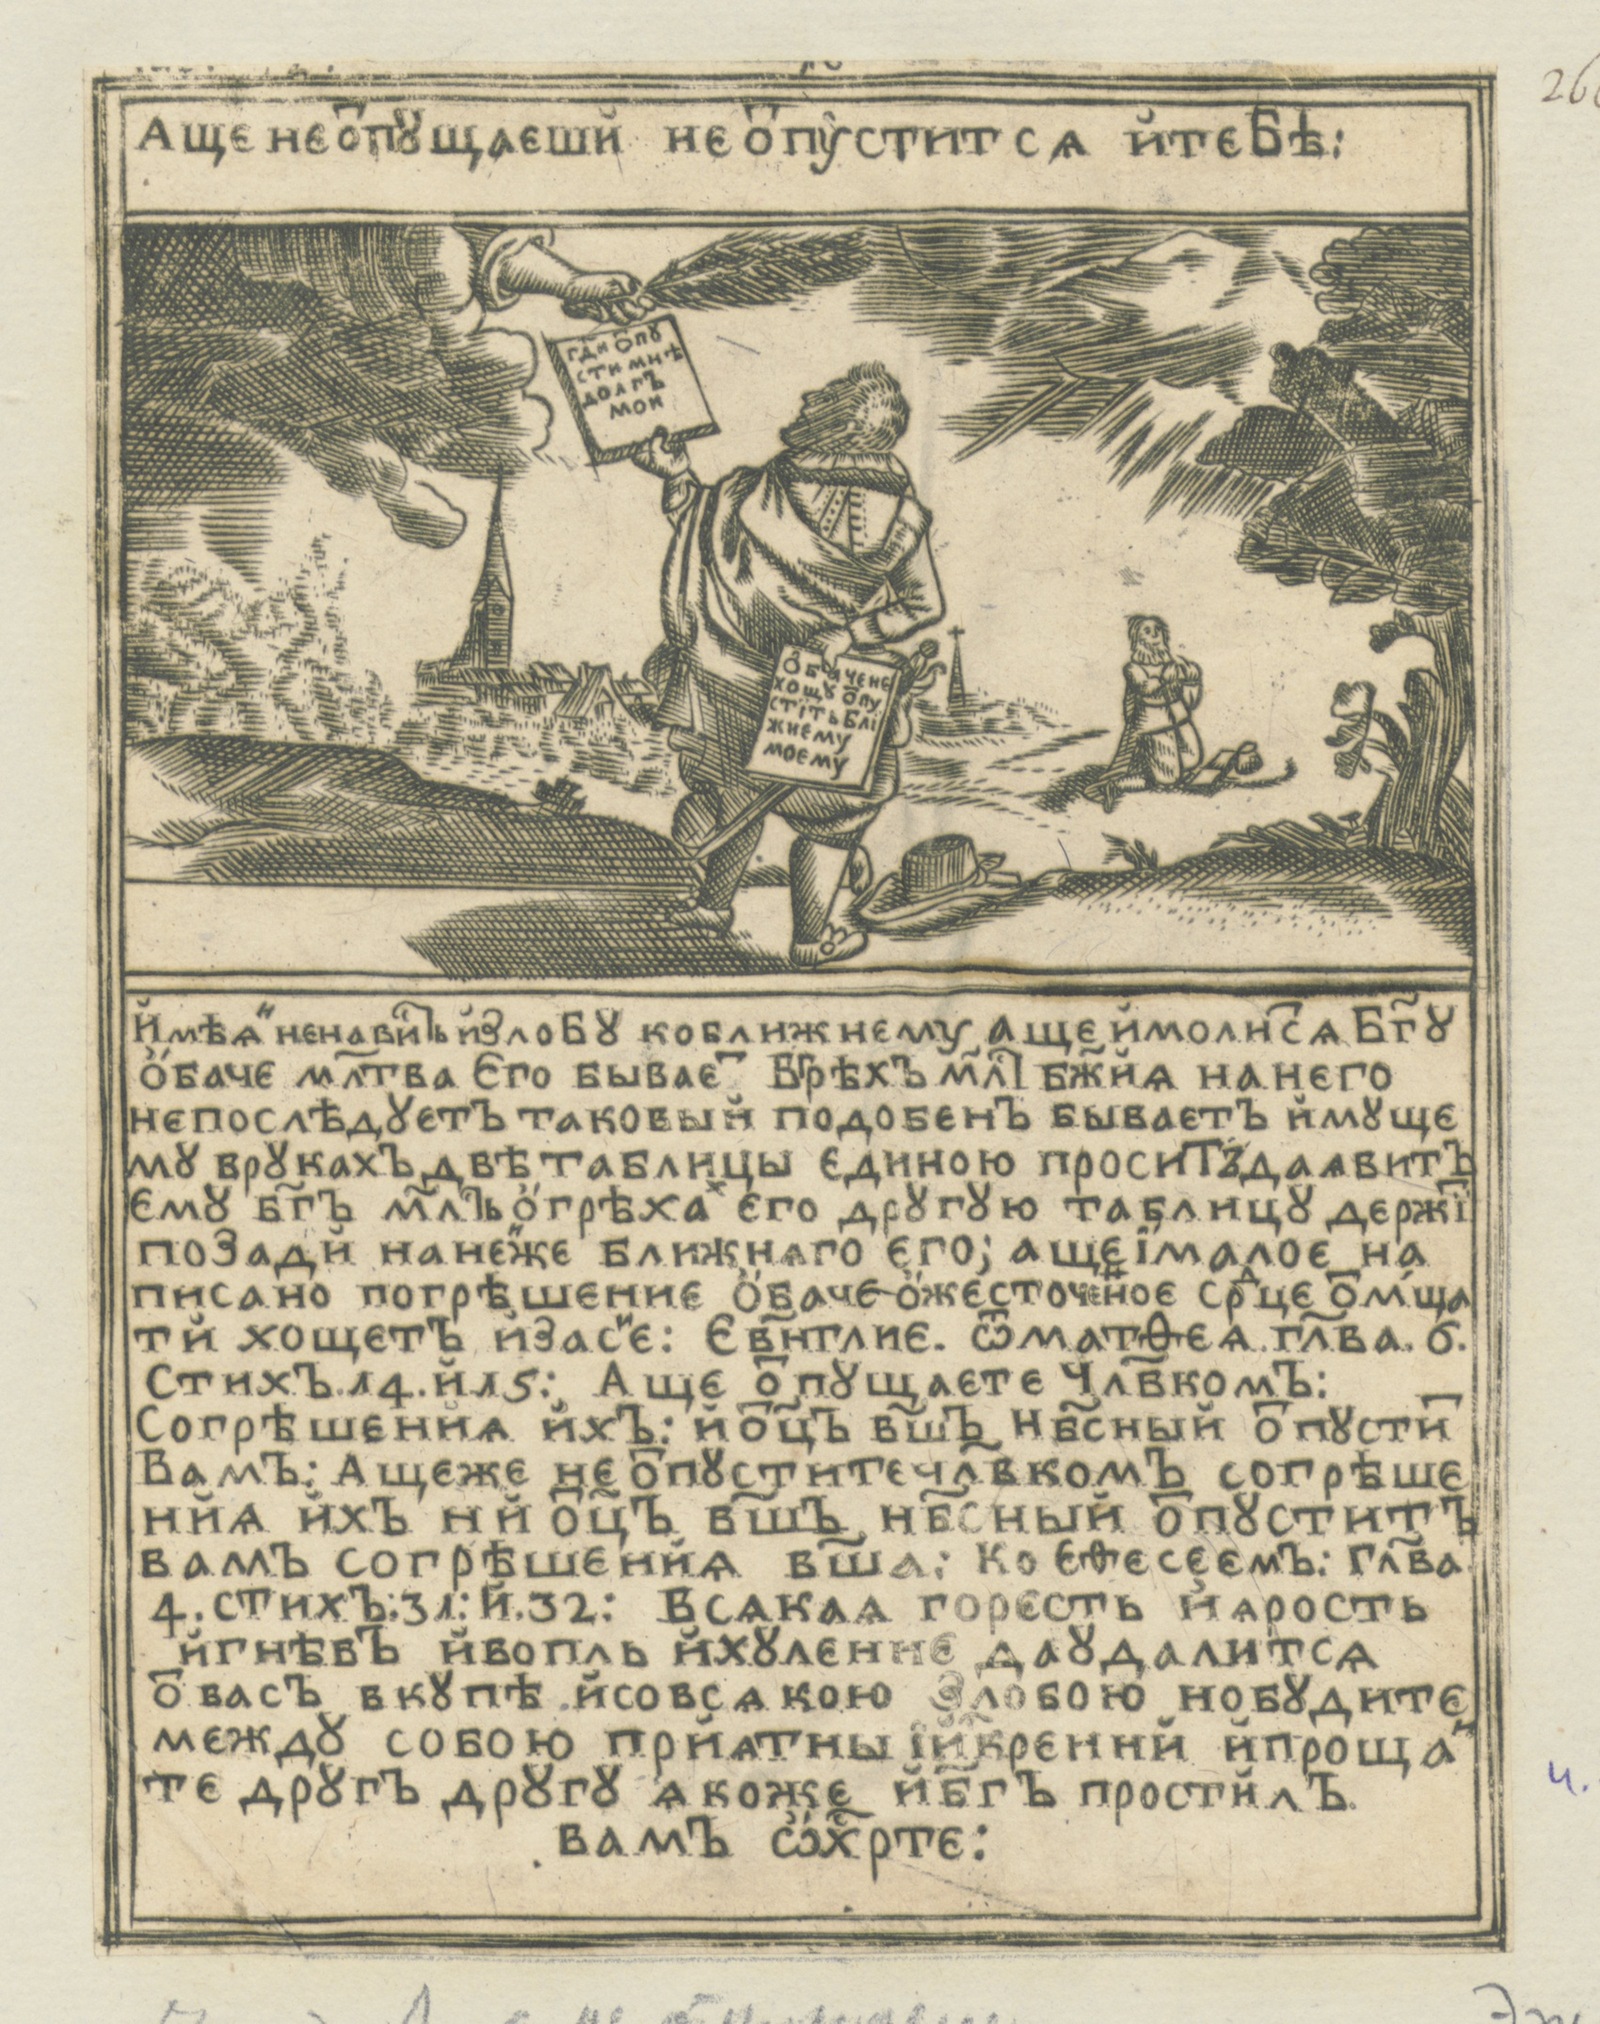 Аще не ѿпꙋщаеши не ѿпустится и тебѣ:
гди ѿпу
сти мнѣ
долгъ
мои
Обаче не
хощꙋ ѿпу
стіть блі
жнему
моему
Имѣяй ненависть и злобꙋ ко ближнему аще и молится Бг҃ꙋ
обаче мл҃тва его бывает в грѣхъ бж҃ия на него
не послѣдꙋетъ таковый подобенъ бываетъ имꙋще
мꙋ в рꙋкахъ двѣ таблицы единою проситъ да явитъ
емꙋ бг҃ъ о грѣхах его дрꙋгꙋю таблицꙋ держі
позади на нейже ближняго его; аще і малое на
писано погрѣшение обаче ожесточенное срдце ѿмща
ти хощетъ и за сие: Евн҃глие. Ѿ матѳея. гл҃ва. 6.
Стихъ. 14. и 15: Аще ѿпꙋщаете члв҃комъ:
Согрѣшения ихъ: и оц҃ъ вш҃ъ нб҃сный ѿпꙋстит
Вамъ: Аще же не ѿпꙋстите члв҃комъ согрѣше
ния ихъ ни оц҃ъ вш҃ъ нб҃сный ѿпꙋститъ
вамъ согрѣшения вш҃а: Ко Еѳесеемъ: гл҃ва
4. стихъ: 31: и. 32: Всякая горесть и ярость
и гнѣвъ и вопль и хꙋление да ꙋдалится
ѿ васъ вкꙋпѣ и со всякою злобою но бꙋдите
междꙋ собою приятны і искренни и прощай
те дрꙋгъ дрꙋгꙋ якоже и бг҃ъ простилъ
вамъ ѡ хр҃те: